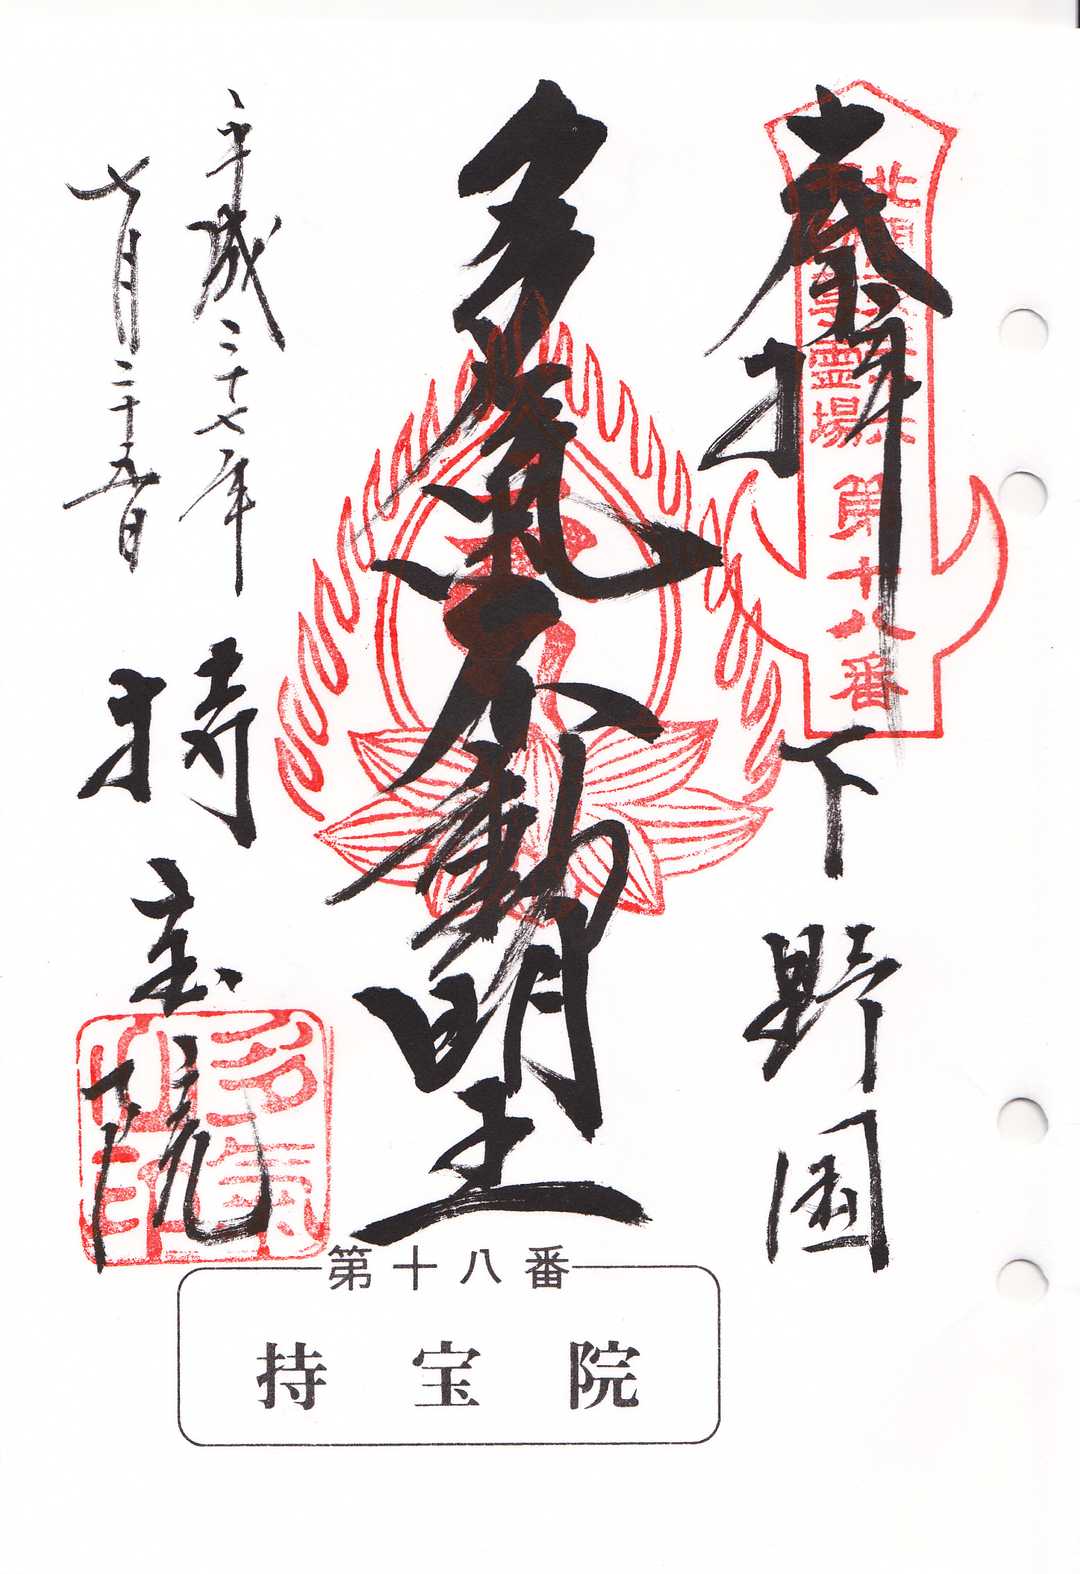 奉拝
下野国
北関東三十六
不動尊霊場
第十八番
多氣不動明王
平成二十七年
七月二十五日
持宝院
多氣
第十八番
持宝院